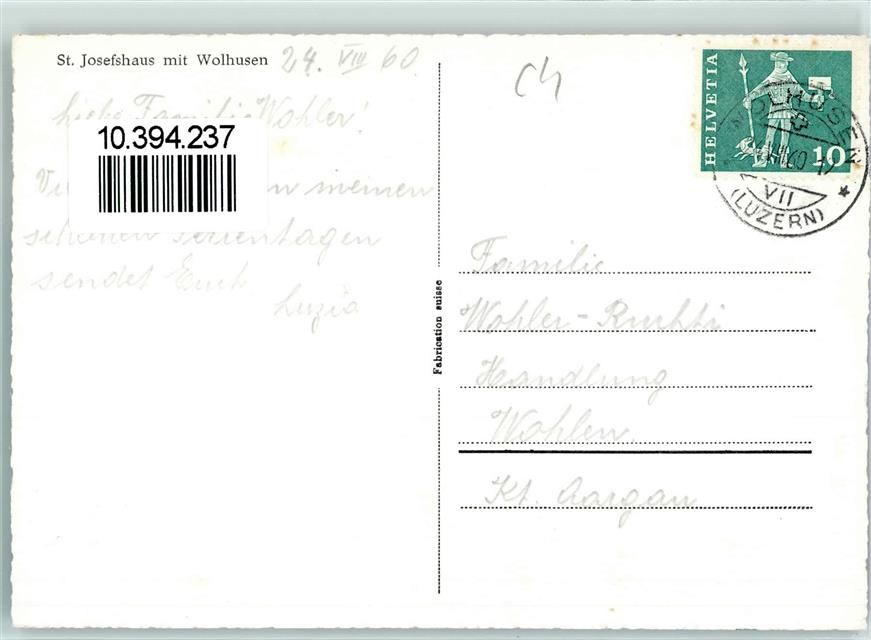 St. Josefshaus mit Wolhusen 24. VIII 60
Liebe Familie Wohler!
10.394.237
meinen
schönen Ferientagen
sendet Euch
Luzia
Fabrication suisse
CH
HELVETIA
10
WOLHUSEN
VII 60
(LUZERN)
Familie
Wohler-
Handlung
Wohlen
Kt. Aargau